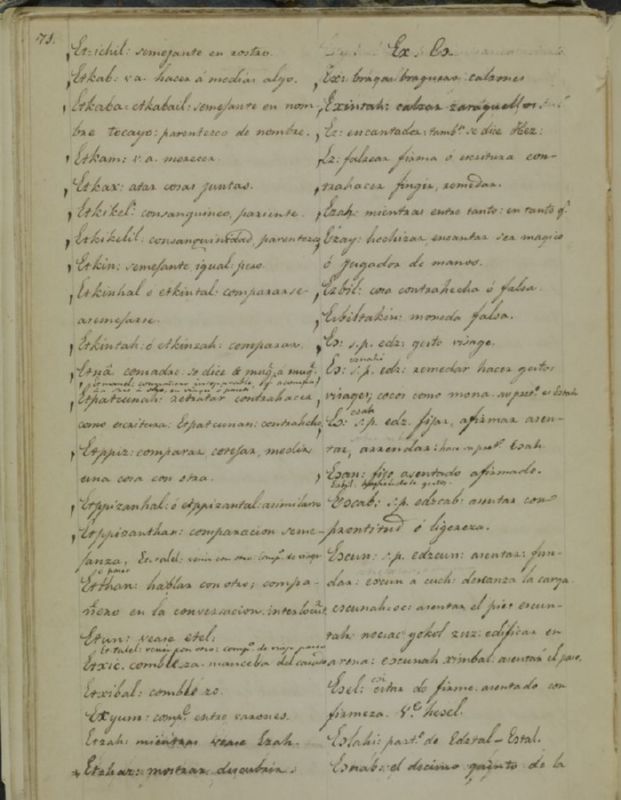 71.
Etzichil: semejante en rostro.
Etkab: v.a. hacer á medias algo.
Etkaba: etkabail: semejante en nom-
bre tocayo: parentesco de nombre.
Etkam: v.a. merecer.
Etkax: atar cosas juntas.
Etkikel: consanguineo, pariente.
Etkikelil, consanguinidad, parentezco
Etkin: semejante, igual: peso.
Etkinhal ó etkintal: compararse
asemejarse.
Etkintah: ó etkinzah: comparar.
Etná comadre: se dice de mugr. á mugr.
Etpatcunah: retratar contrahacer
como escritura: Etpatcunan: contrahecho
Etppiz: comparar, cotejar, medir
una cosa con otra.
Etppizanhal: ó etppizantal: asimilarse
Etppizanthan: comparacion seme-
janza,
Etthan: hablar con otro; compa-
ñero en la conversacion. interlocutr.
Etun: vease etel:
Etxic. combleza. manceba del casado
Etxibal: comblezo.
Etyum: comp.º entre varones.
Etzah: mientras vease Ezah.
Etzhaz: mostrar, descubrir.
Ex. Es.
Ex: bragas braguesas: calzones
Exintah: calzar zaraguelles
Ez: encantador: tamb.n se dice Hez:
Ez: falsear firma ó escritura con-
trahacer fingir, remedar.
Ezah: mientras entre tanto: en tanto q.e
Ezay: hechizar, encantar ser magico
ó jugador de manos.
Ezbil: cosa contrahecha ó falsa.
Ezbiltakin: moneda falsa.
Es: s.p. edz: gesto visage.
Es: s.p. edz: remedar hacer gestos
visages; cocos como mona. su pret.º es Esah
Es: s.p. edz. fijar, afirmar asen-
tar, arrendar: hace su pret.º Esah
Esan: fijo asentado afirmado.
Escab: s.p. edzcab: asentar con
prontitud ó ligereza.
Escun: s.p. edzcun: asentar: fun-
dar: escun a cuch: descanza la carga.
escunah: oc: asentar el pie: escun-
tah nociac yokol zuz: edificar en
arena: escunah ximbal: asentar el paso.
Esel: estar de firme. asentado con
firmeza. V.e hesel.
Eslahi: part.º de Edztal - Estal.
Esnab: el decimo quinto de la